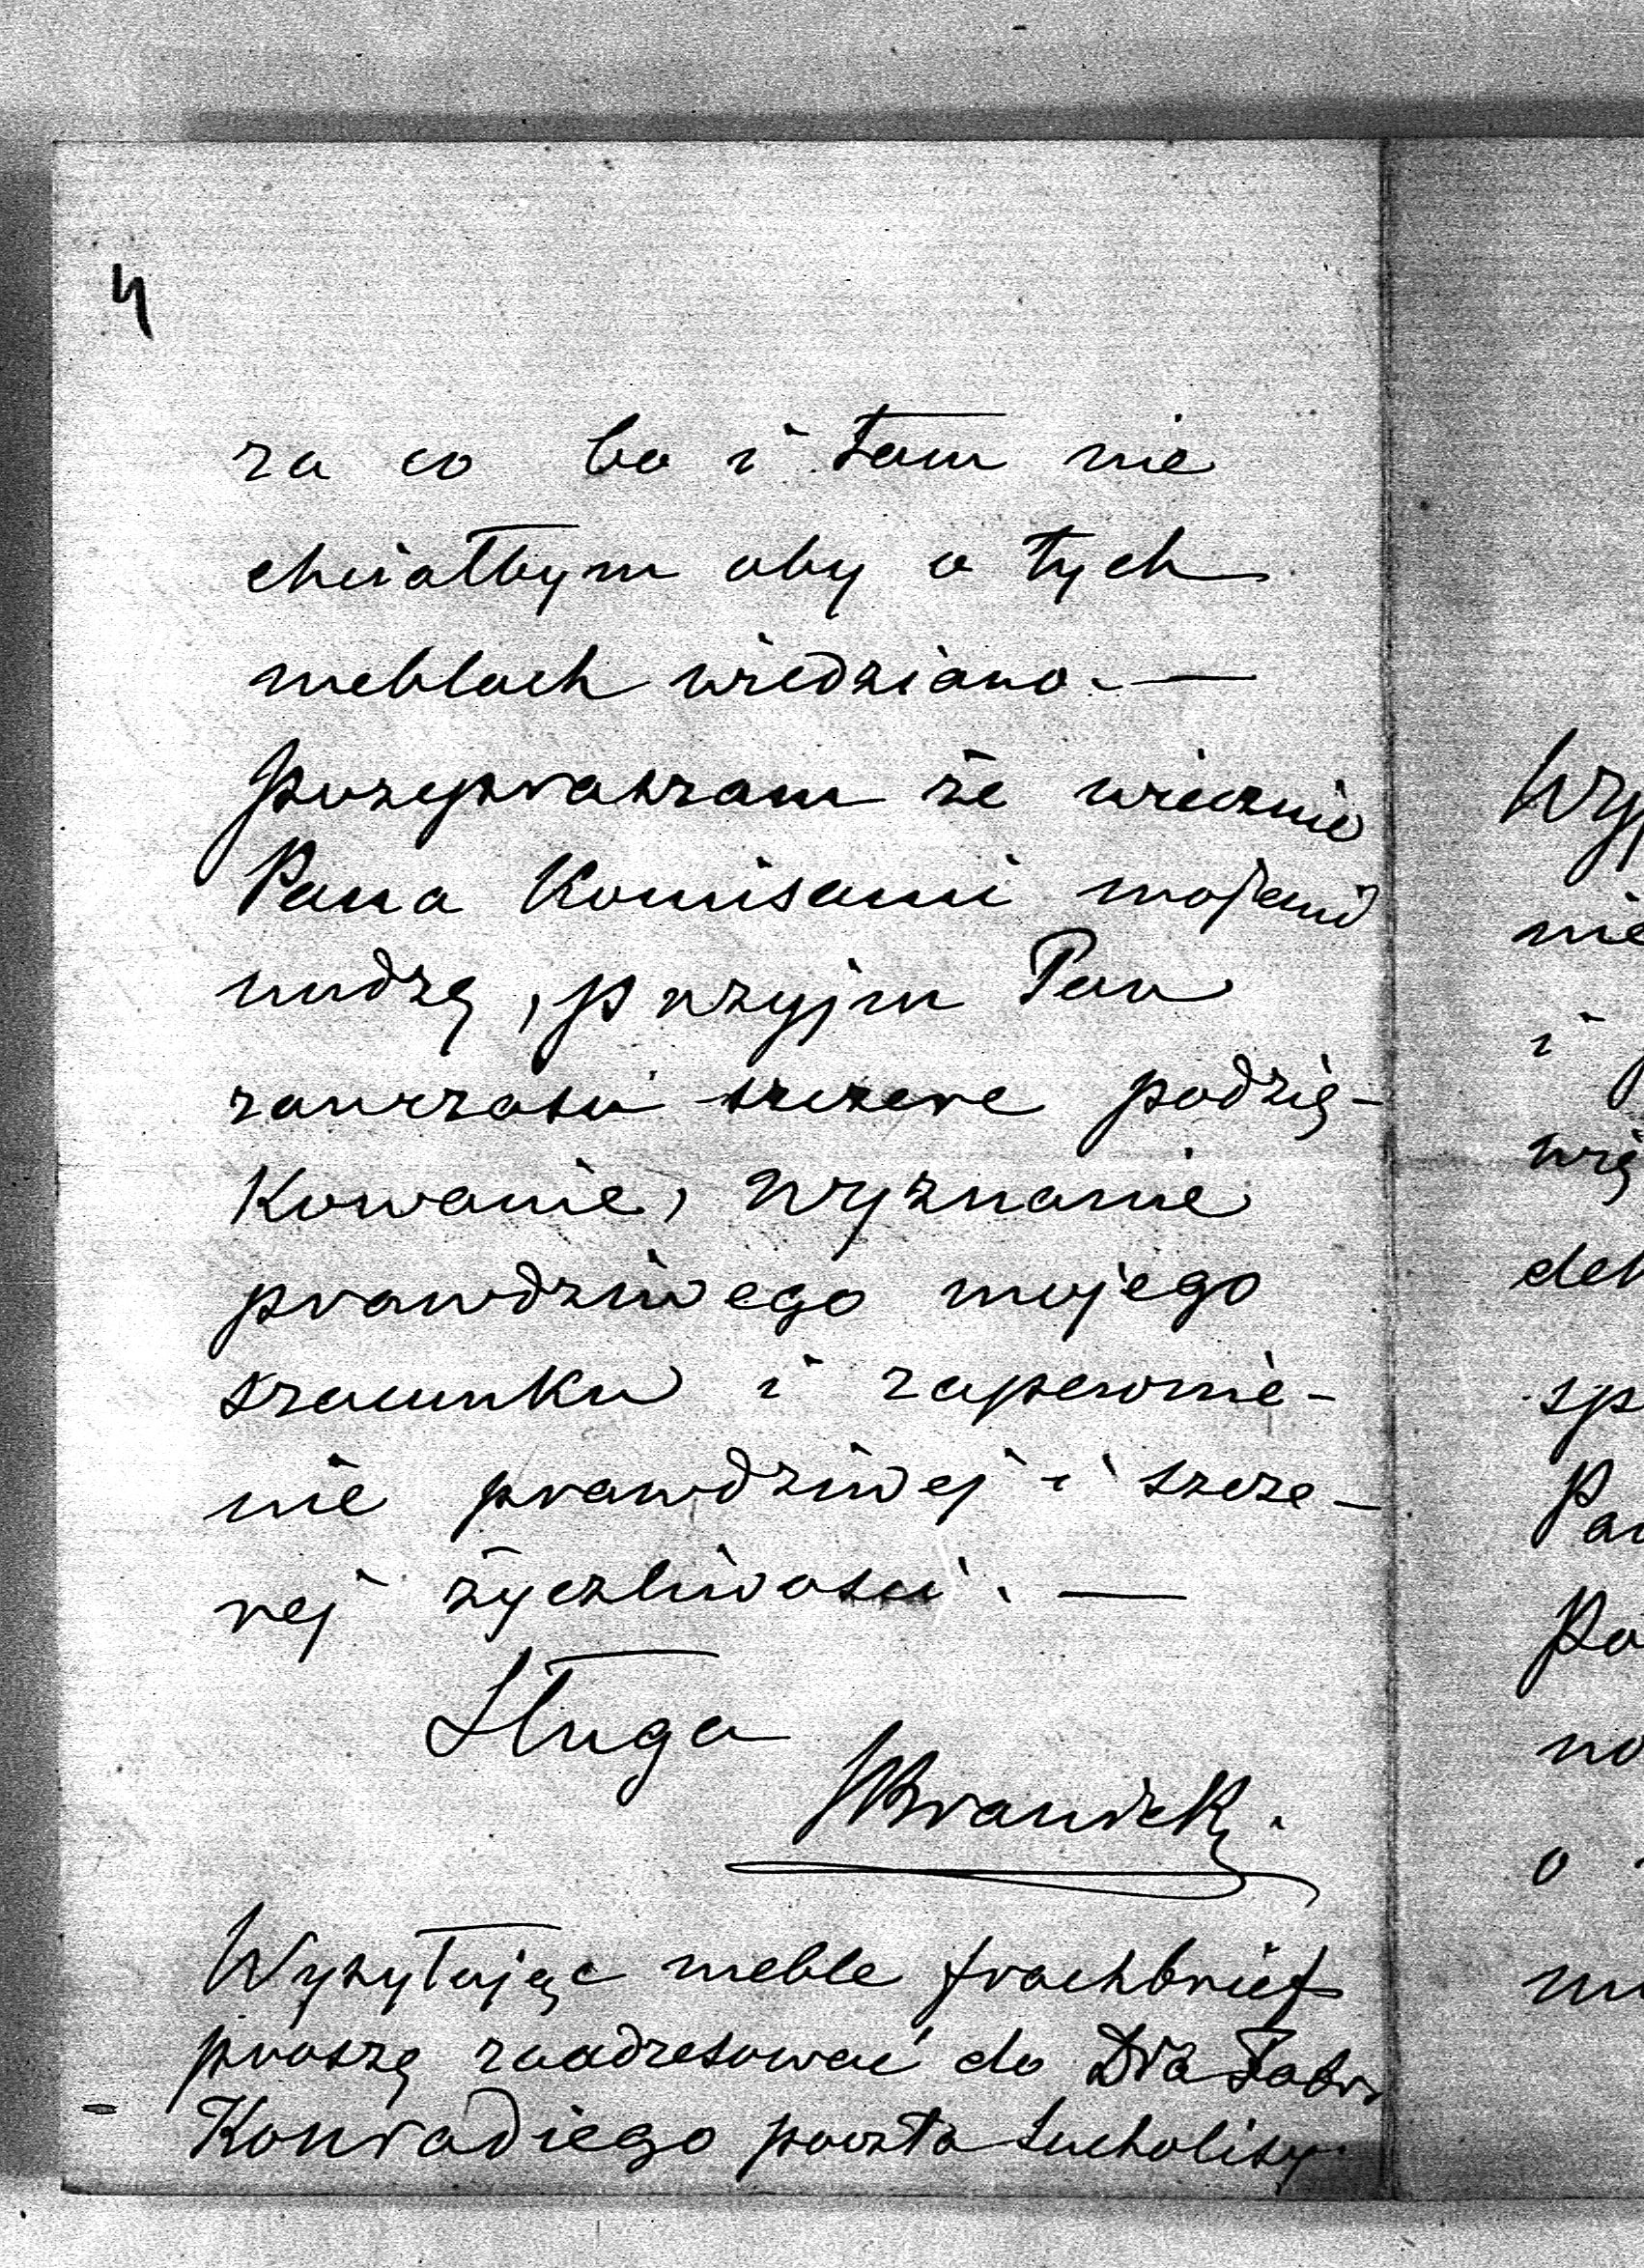 4
za co bo i tam nie
chciałbym aby o tych
meblach wiedziano. —
przepraszam że wiecznie
Pana Komisami mojemi
nudzę, przyjm Pan
zawczasu szczere podzię-
kowanie, wyznanie
prawdziwego mojego
szacunku i zapewnie-
nie prawdziwej i szcze-
rej życzliwości. —
Sługa
Branicki.
Wysyłając meble frachbrief
proszę zaadresować do Dra
Konradiego poczta Sucholisy